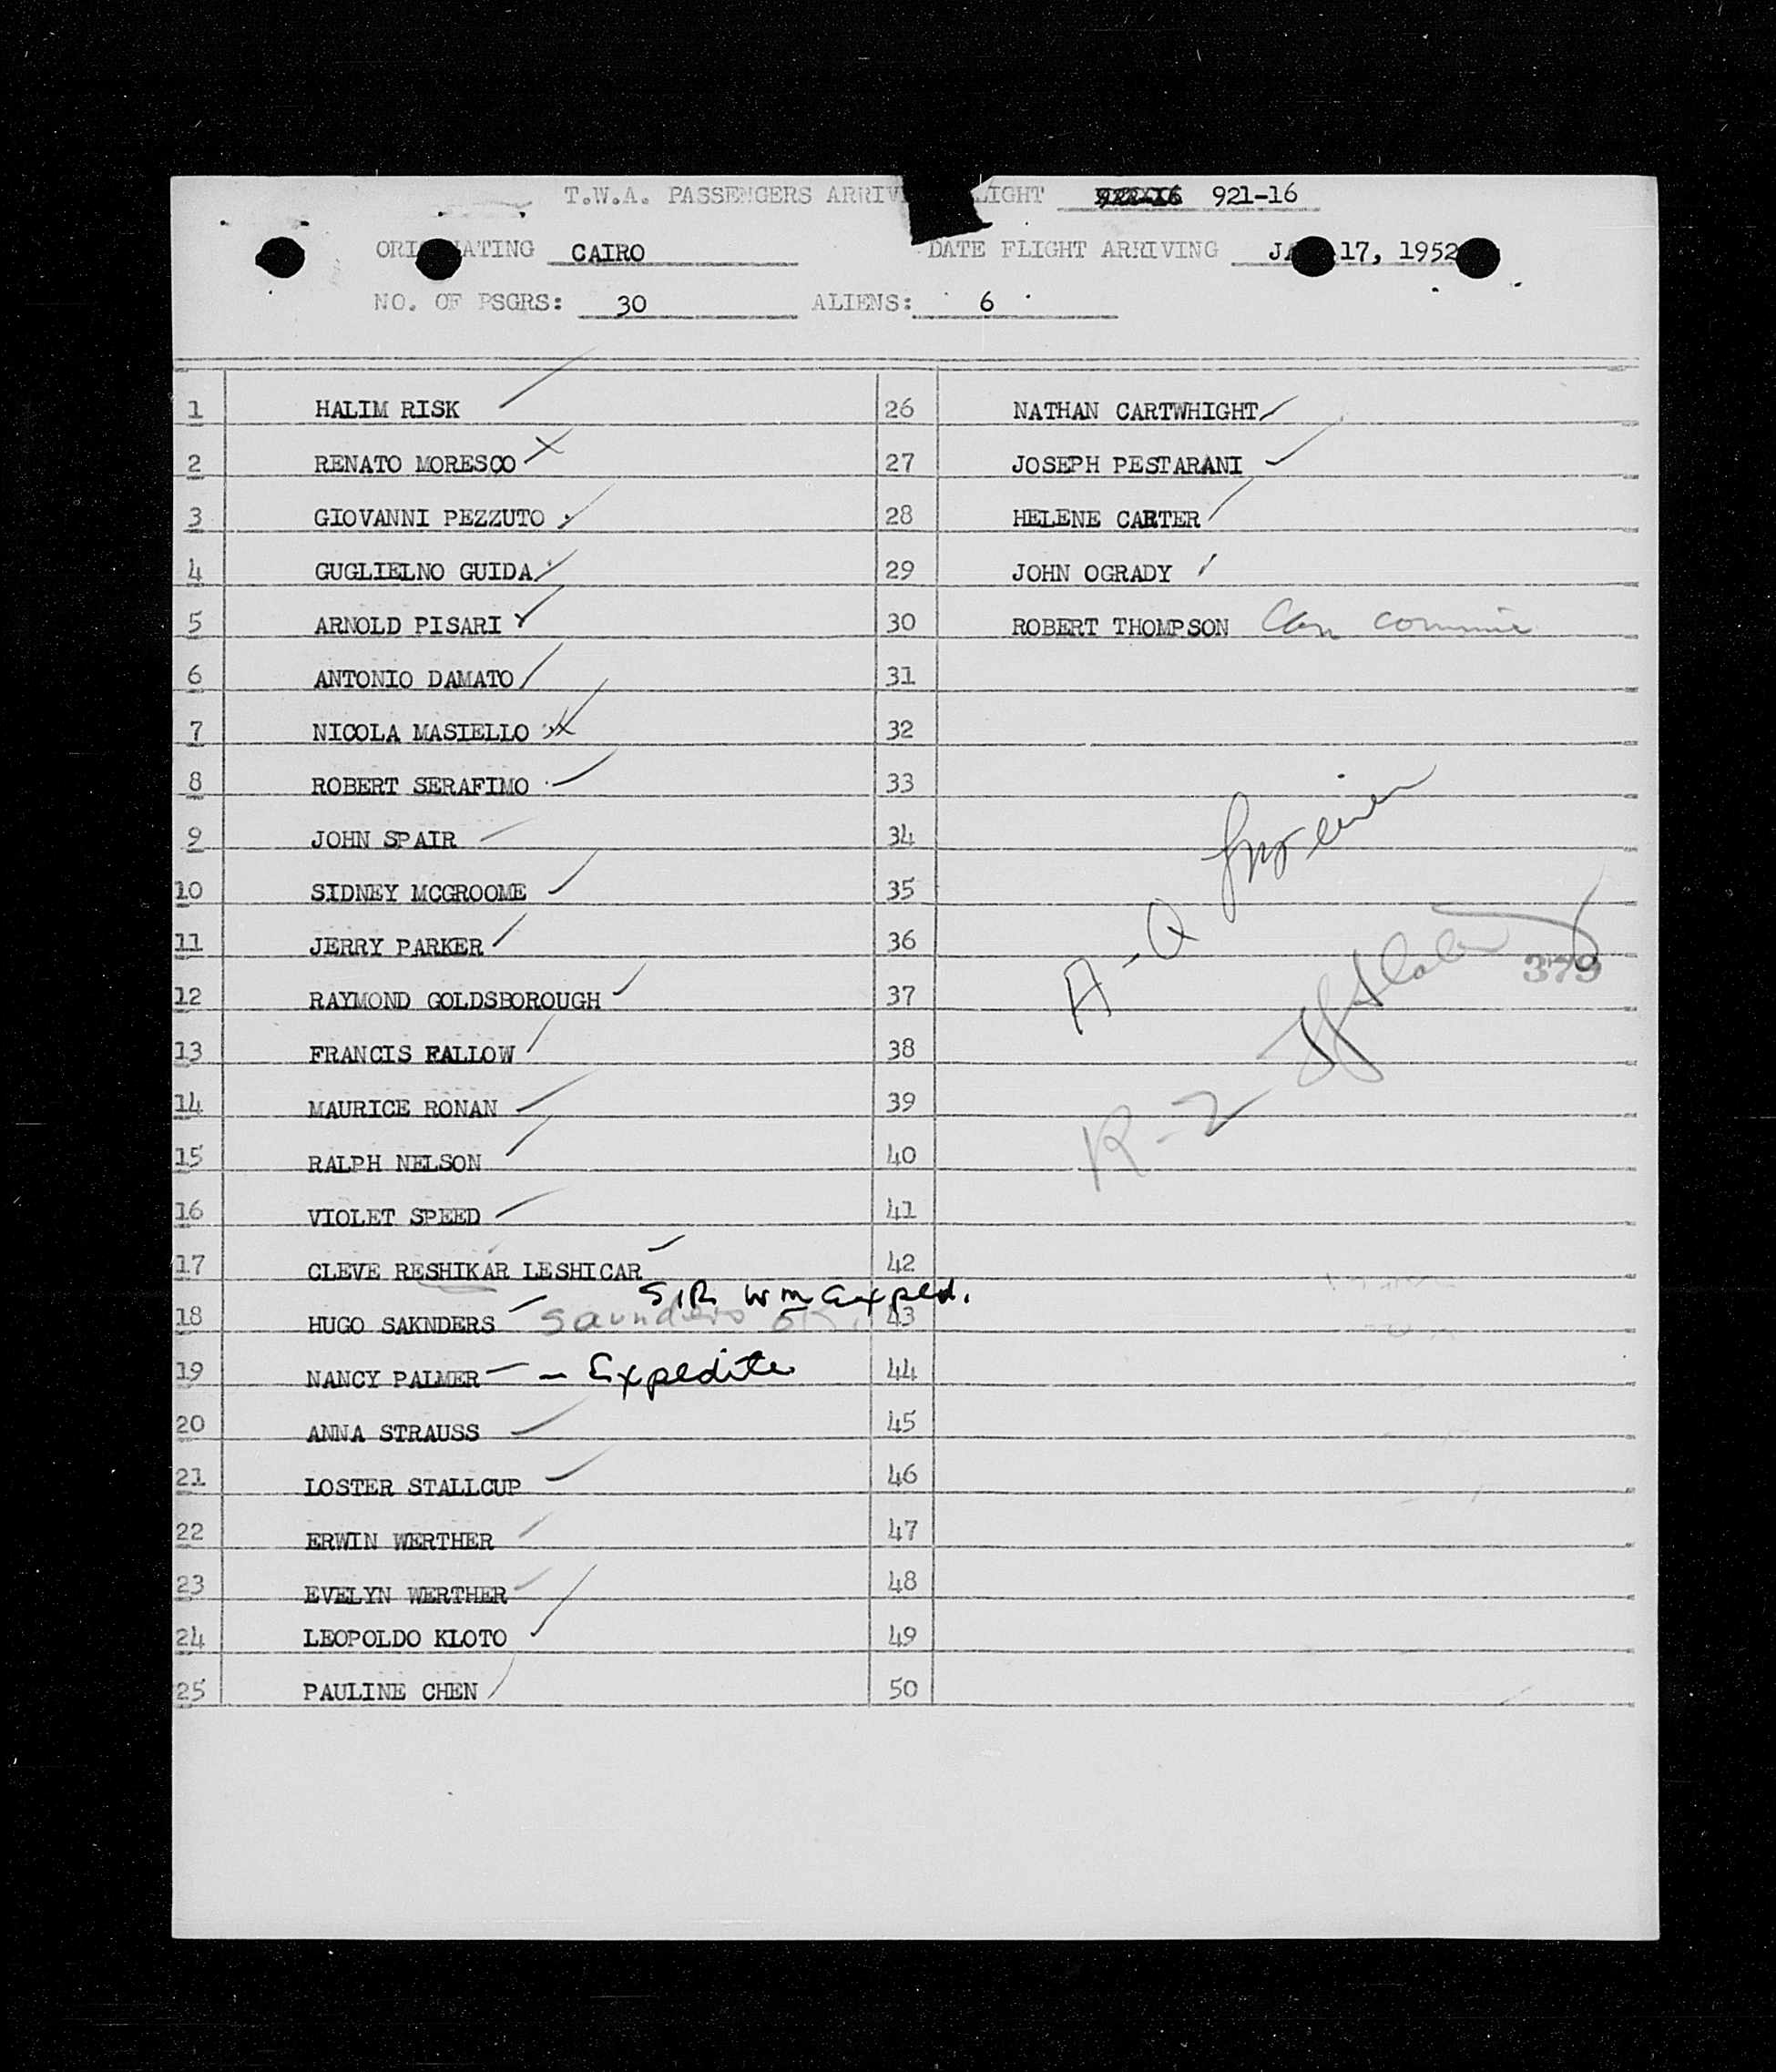 T.W.A. PASSENGERS ARRIV LIGHT 921-16
ORI ATING CAIRO DATE FLIGHT ARRIVING JA 17, 1952
NO. OF PSGRS: 30 ALIENS: 6
1 HALIM RISK
2 RENATO MORESCO
3 GIOVANNI PEZZUTO
4 GUGLIELNO GUIDA
5 ARNOLD PISARI
6 ANTONIO DAMATO
7 NICOLA MASIELLO
8 ROBERT SERAFIMO
9 JOHN SPAIR
10 SIDNEY MCGROOME
11 JERRY PARKER
12 RAYMOND GOLDSBOROUGH
13 FRANCIS FALLOW
14 MAURICE RONAN
15 RALPH NELSON
16 VIOLET SPEED
17 CLEVE RESHIKAR LESHICAR
SIR WM Exped.
18 HUGO SAKNDERS Saunders
19 NANCY PALMER - Expedite
20 ANNA STRAUSS
21 LOSTER STALLCUP
22 ERWIN WERTHER
23 EVELYN WERTHER
24 LEOPOLDO KLOTO
25 PAULINE CHEN
26 NATHAN CARTWHIGHT
27 JOSEPH PESTARANI
28 HELENE CARTER
29 JOHN OGRADY
30 ROBERT THOMPSON Can
31
32
33
34
35
36
37
38
39
40
41
42
43
44
45
46
47
48
49
50
A-Q
379
R-Z